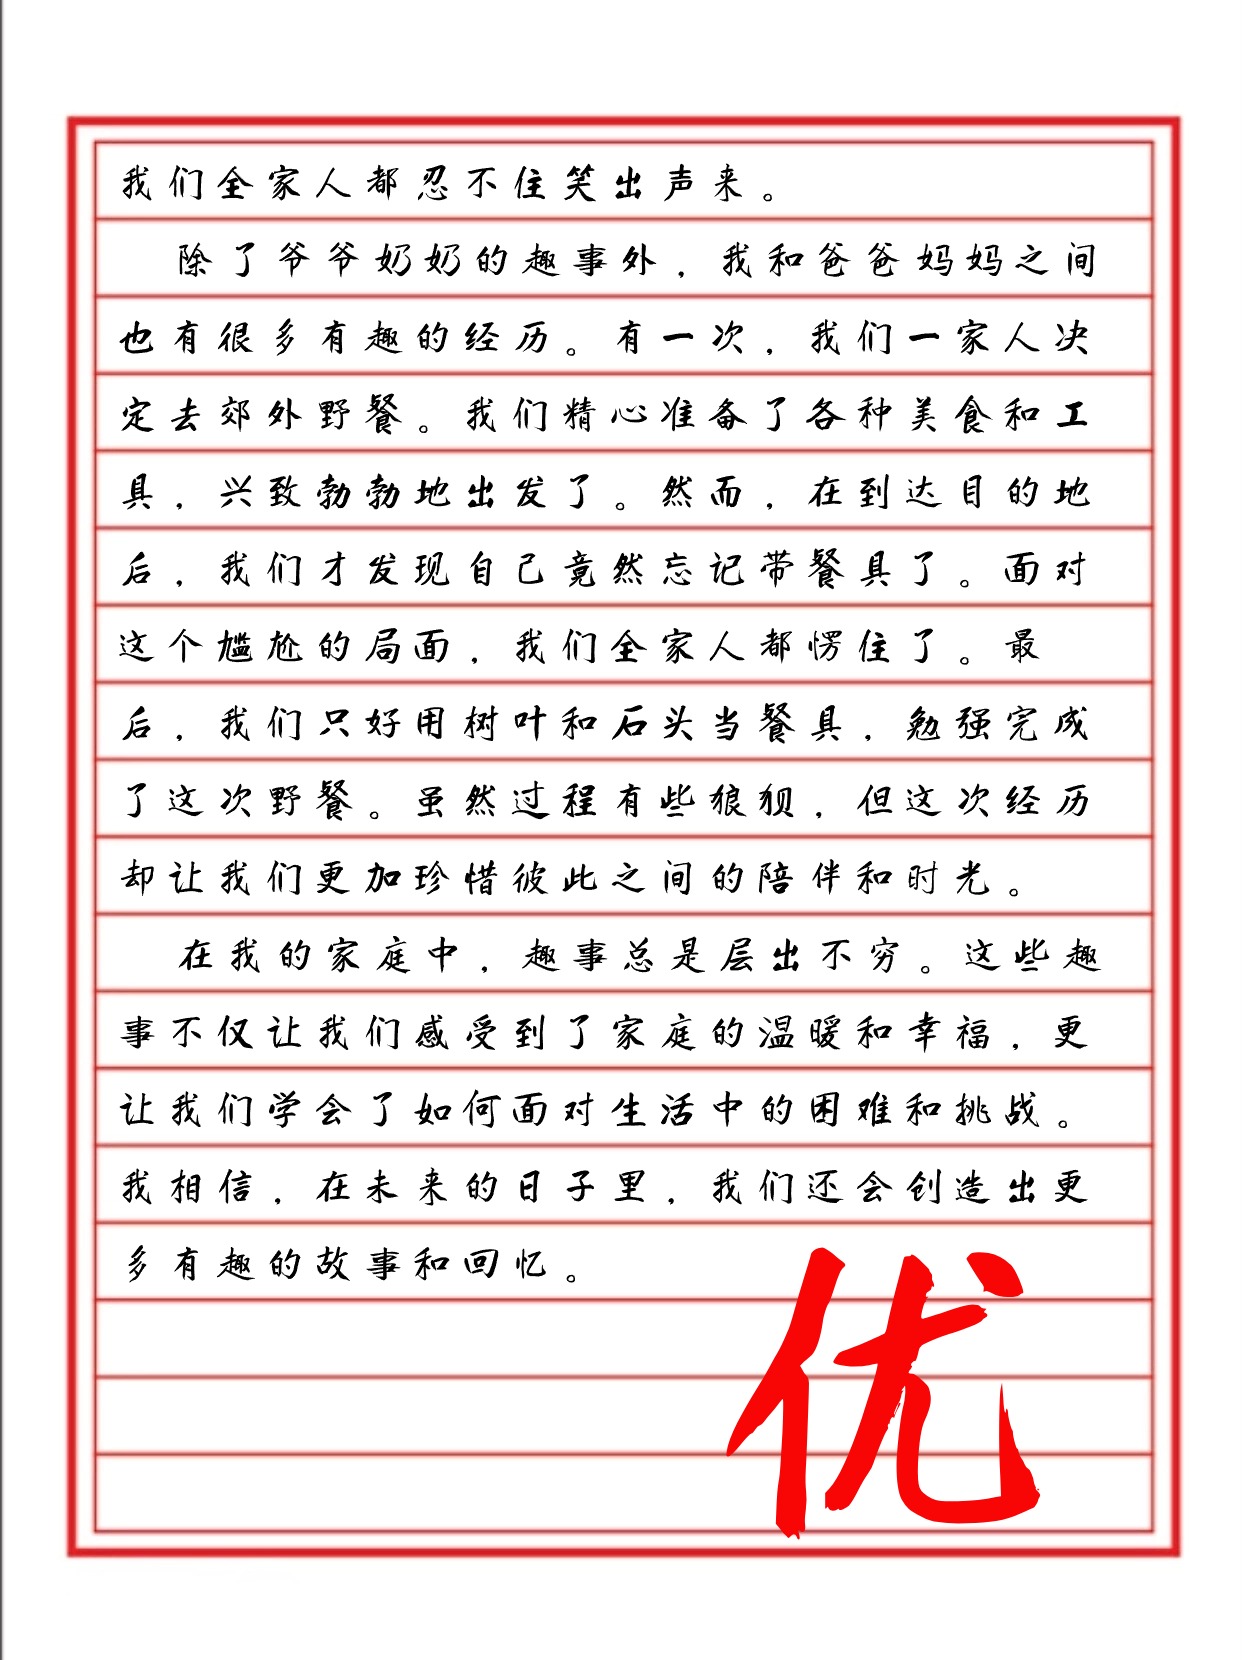 我们全家人都忍不住笑出声来。
除了爷爷奶奶的趣事外，我和爸爸妈妈之间
也有很多有趣的经历。有一次，我们一家人决
定去郊外野餐。我们精心准备了各种美食和工
具，兴致勃勃地出发了。然而，在到达目的地
后，我们才发现自己竟然忘记带餐具了。面对
这个尴尬的局面，我们全家人都愣住了。最
后，我们只好用树叶和石头当餐具，勉强完成
了这次野餐。虽然过程有些狼狈，但这次经历
却让我们更加珍惜彼此之间的陪伴和时光。
在我的家庭中，趣事总是层出不穷。这些趣
事不仅让我们感受到了家庭的温暖和幸福，更
让我们学会了如何面对生活中的困难和挑战。
我相信，在未来的日子里，我们还会创造出更
多有趣的故事和回忆。
优